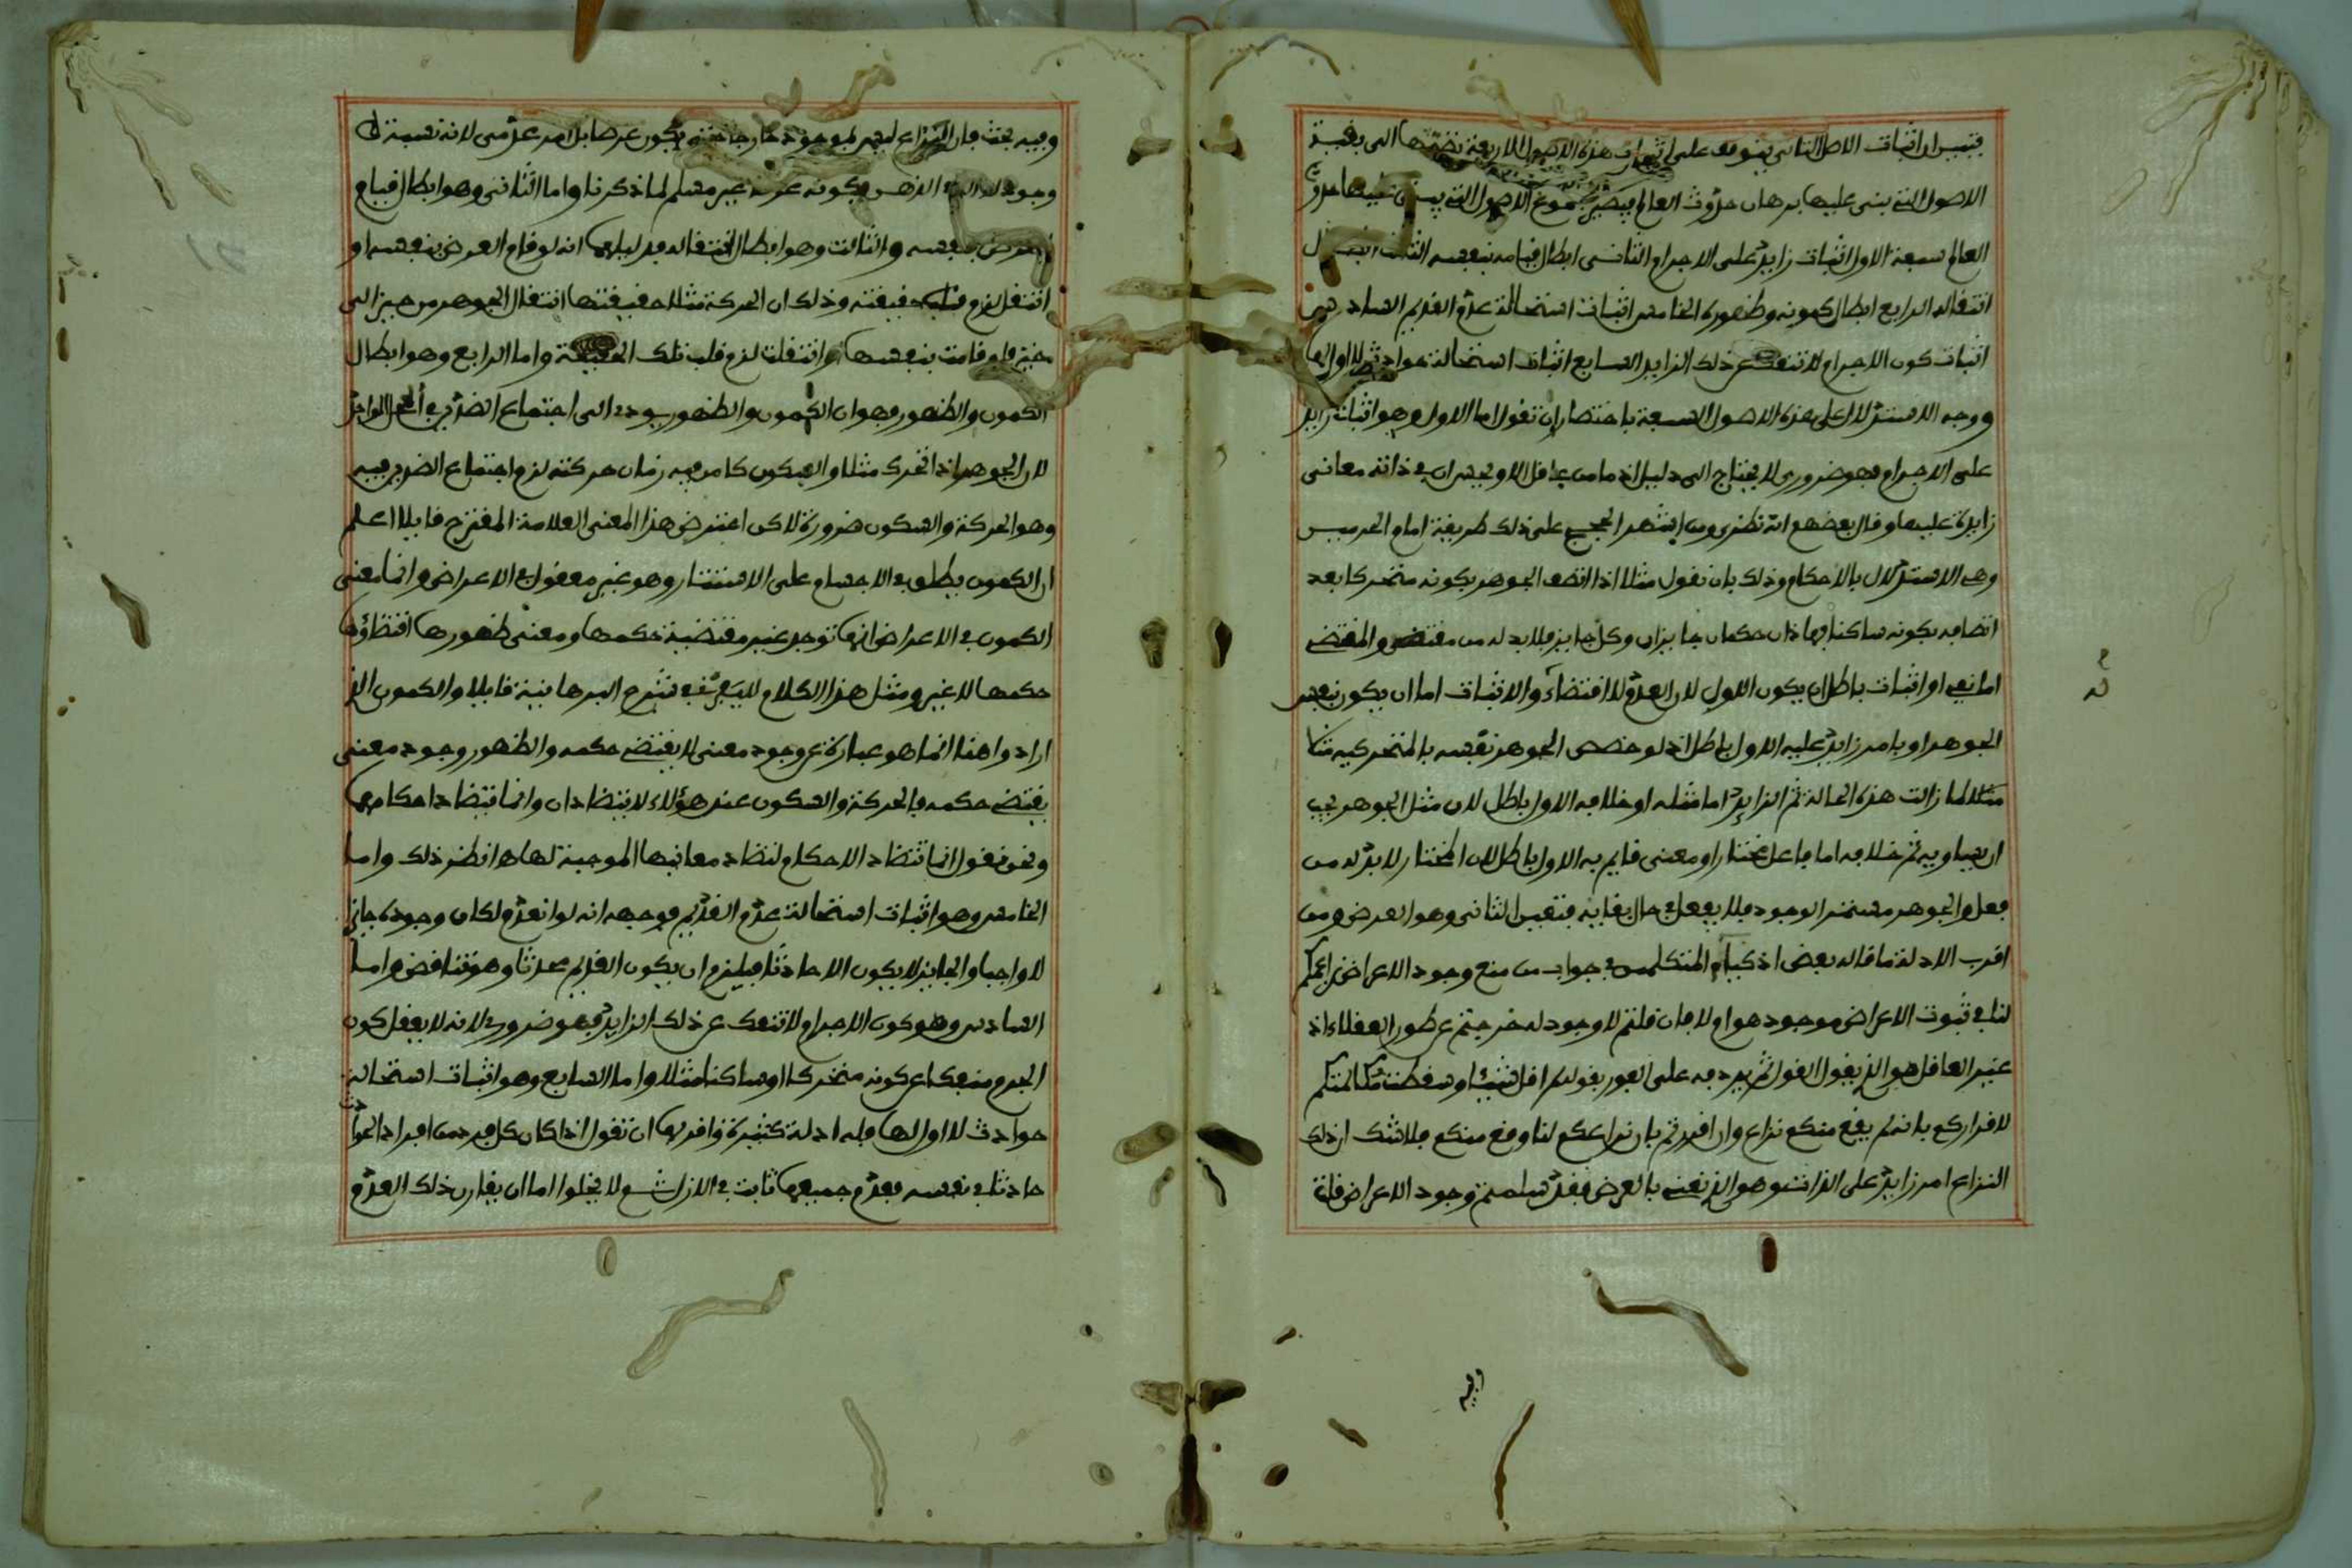 فتبين ان اثبات الاصل الثاني يتوقف على اثبات هذه الاصول الاربعة نضمها الى بقية
الاصول التي بنى عليها برهان حدوث العالم فيصير مجموع الاصول التي ينبني عليها حدوث
العالم سبعة الاول اثبات زايد على الاجرام الثاني ابطال قيامه بنفسه الثالث ابطال
انتقاله الرابع ابطال كمونه وظهوره الخامس اثبات استحالة عدم القديم السادس
اثبات كون الاجرام لا تنفك عن ذلك الزايد السابع اثبات استحالة حوادث لا اول لها
ووجه الاستدلال على هذه الاصول السبعة باختصار ان تقول اما الاول وهو اثبات زايد
على الاجرام فهو ضروري لا يحتاج الى دليل اذ ما من عاقل الا ويحس ان في ذاته معاني
زايدة عليها وقال بعضهم انه نظري ومن اشهر الحجج على ذلك طريقة امام الحرمين
وهي الاستدلال بالاحكام وذلك بان نقول مثلا اذا اتصف الجوهر بكونه متحركا بعد
اتصافه بكونه ساكنا فهاذان حكمان جايزان وكل جايز فلا بد له من مقتض والمقتضي
اما نفي او اثبات باطل ان يكون الاول لان العدم لا اقتضاء والاثبات اما ان يكون نفس
الجوهر او بامر زايد عليه الاول باطل اذ لو خصص الجوهر نفسه بالمتحركية
مثلا لما زالت هذه الحالة ثم الزايد اما مثله او خلافه الاول باطل لان مثل الجوهر يجب
ان يساويه ثم خلافه اما فاعل مختار او معنى قايم به الاول باطل لان المختار لا بد له من
فعل والجوهر مستمر الوجود فلا يفعل في حال بقايه فتعين الثاني وهو العرض ومن
اقرب الادلة ما قاله بعض اذكياء المتكلمين في جواب من منع وجود الاعراض نزاعكم
لنا في ثبوت الاعراض موجود هو ام لا فان قلتم لا وجود له خرجتم عن طور العقلاء اذ
غير العاقل هو الذي يقول القول ثم يردفه على الفور بقوله لم اقل شيئا وسقطت مكالمتكم
لاقراركم بانه لم يقع منكم نزاع وان اقررتم بان نزاعكم لنا وقع منكم فلا شك ان ذلك
النزاع امر زايد على الذات وهو الذي نعني بالعرض فقد سلمتم وجود الاعراض
وفيه
وفيه بحث فان النزاع ليس بموجود خارجا حتى يكون عرضا بل امر عدمي لانه نسبة لا
وجود لها الا في الذهن فكونه عرضا غير مسلم لما ذكرنا واما الثاني وهو ابطال قيام
العرض بنفسه والثالث وهو ابطال انتقاله فدليلهما انه لو قام العرض بنفسه او
انتقل لزم قلب حقيقته وذلك ان الحركة مثلا حقيقتها انتقال الجوهر من حيز الى
حيز فلو قامت بنفسها او انتقلت لزم قلب تلك الحقيقة واما الرابع وهو ابطال
الكمون والظهور فهو ان الكمون والظهور يودي الى اجتماع الضدين في المحل الواحد
لان الجوهر اذا تحرك مثلا والسكون كامن فيه زمان حركته لزم اجتماع الضدين فيه
وهو الحركة والسكون ضرورة لاكن اعترض هذا المعنى العلامة المقترح قايلا اعلم
ان الكمون يطلق في الاجسام على الاستتار وهو غير معقول في الاعراض وانما معنى
الكمون في الاعراض انها توجد غير مقتضية حكمها ومعنى ظهورها اقتضاؤها
حكمها لا غير ومثل هذا الكلام لليفرني في شرح البرهانية قايلا والكمون الذي
ارادوا هنا انما هو عبارة عن وجود معنى لا يقتضي حكمه والظهور وجود معنى
يقتضي حكمه فالحركة والسكون عند هؤلاء لا يتضادان وانما تتضاد احكامهما
ونحن نقول انما تتضاد الاحكام لتضاد معانيها الموجبة لها هـ انظر ذلك واما
الخامس وهو اثبات استحالة عدم القديم فوجهه انه لو انعدم لكان وجوده جايزا
لا واجبا والجايز لا يكون الا حادثا فيلزم ان يكون القديم محدثا وهو تناقض واما
السادس وهو كون الاجرام لا تنفك عن ذلك الزايد فهو ضروري لانه لا يعقل كون
الجرم منفكا عن كونه متحركا او ساكنا مثلا واما السابع وهو اثبات استحالة
حوادث لا اول لها فله ادلة كثيرة واقربها ان تقول اذا كان كل فرد من افراد الحوادث
حادثا في نفسه فعدم جميعها ثابت في الازل ثم لا يخلوا اما ان يقارن ذلك العدم